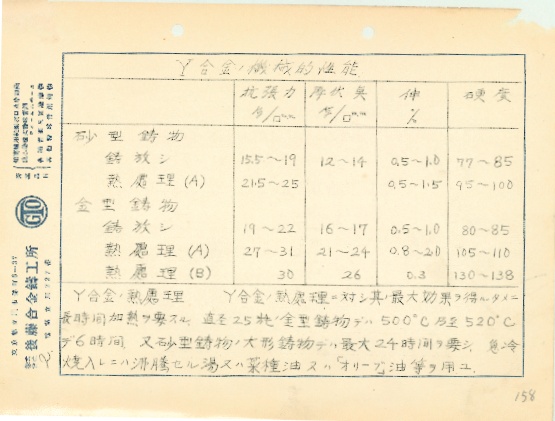 Y合金ノ機械的性能
抗張力 降伏奌 伸 硬度
瓩/□mm 瓩/□mm %
砂型鋳物
鋳放シ 15.5〜19 12〜14 0.5〜1.0 77〜85
熱處理(A) 21.5〜25 0.5〜1.5 95〜100
金型鋳物
鋳放シ 19〜22 16〜17 0.5〜1.0 80〜85
熱處理(A) 27〜31 21〜24 0.8〜2.0 105〜110
熱處理(B) 30 26 0.3 130〜138
Y合金ノ熱處理 Y合金ノ熱處理ニ対シ其ノ最大効果ヲ得ルタメニ
長時間加熱ヲ要スル、直径25粍ノ金型鋳物デハ500°C乃至520°C
デ6時間、又砂型鋳物ノ大形鋳物デハ最大24時間ヲ要シ、急冷
焼入レニハ沸騰セル湯又ハ菜種油又ハ「オリーブ」油等ヲ用ユ.
158
GIO
後藤合金鋳工所